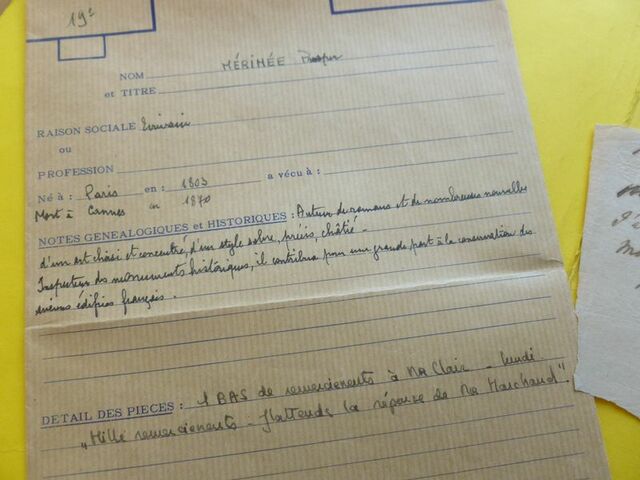 19e
NOM MÉRIMÉE Prosper
et TITRE
RAISON SOCIALE Ecrivain
ou
PROFESSION
Né à : Paris en : 1803 a vécu à :
Mort à Cannes en 1870
NOTES GENEALOGIQUES et HISTORIQUES : Auteur de romans et de nombreuses nouvelles
d'un art choisi et concentré, d'un style sobre, précis, châtié -
Inspecteur des monuments historiques, il contribua pour une grande part à la conservation des
anciens édifices français .
DETAIL DES PIECES : 1 BAS de remerciements à Mr Clair - lundi
"Mille remerciements - J'attends la réponse de Mr Marchand".